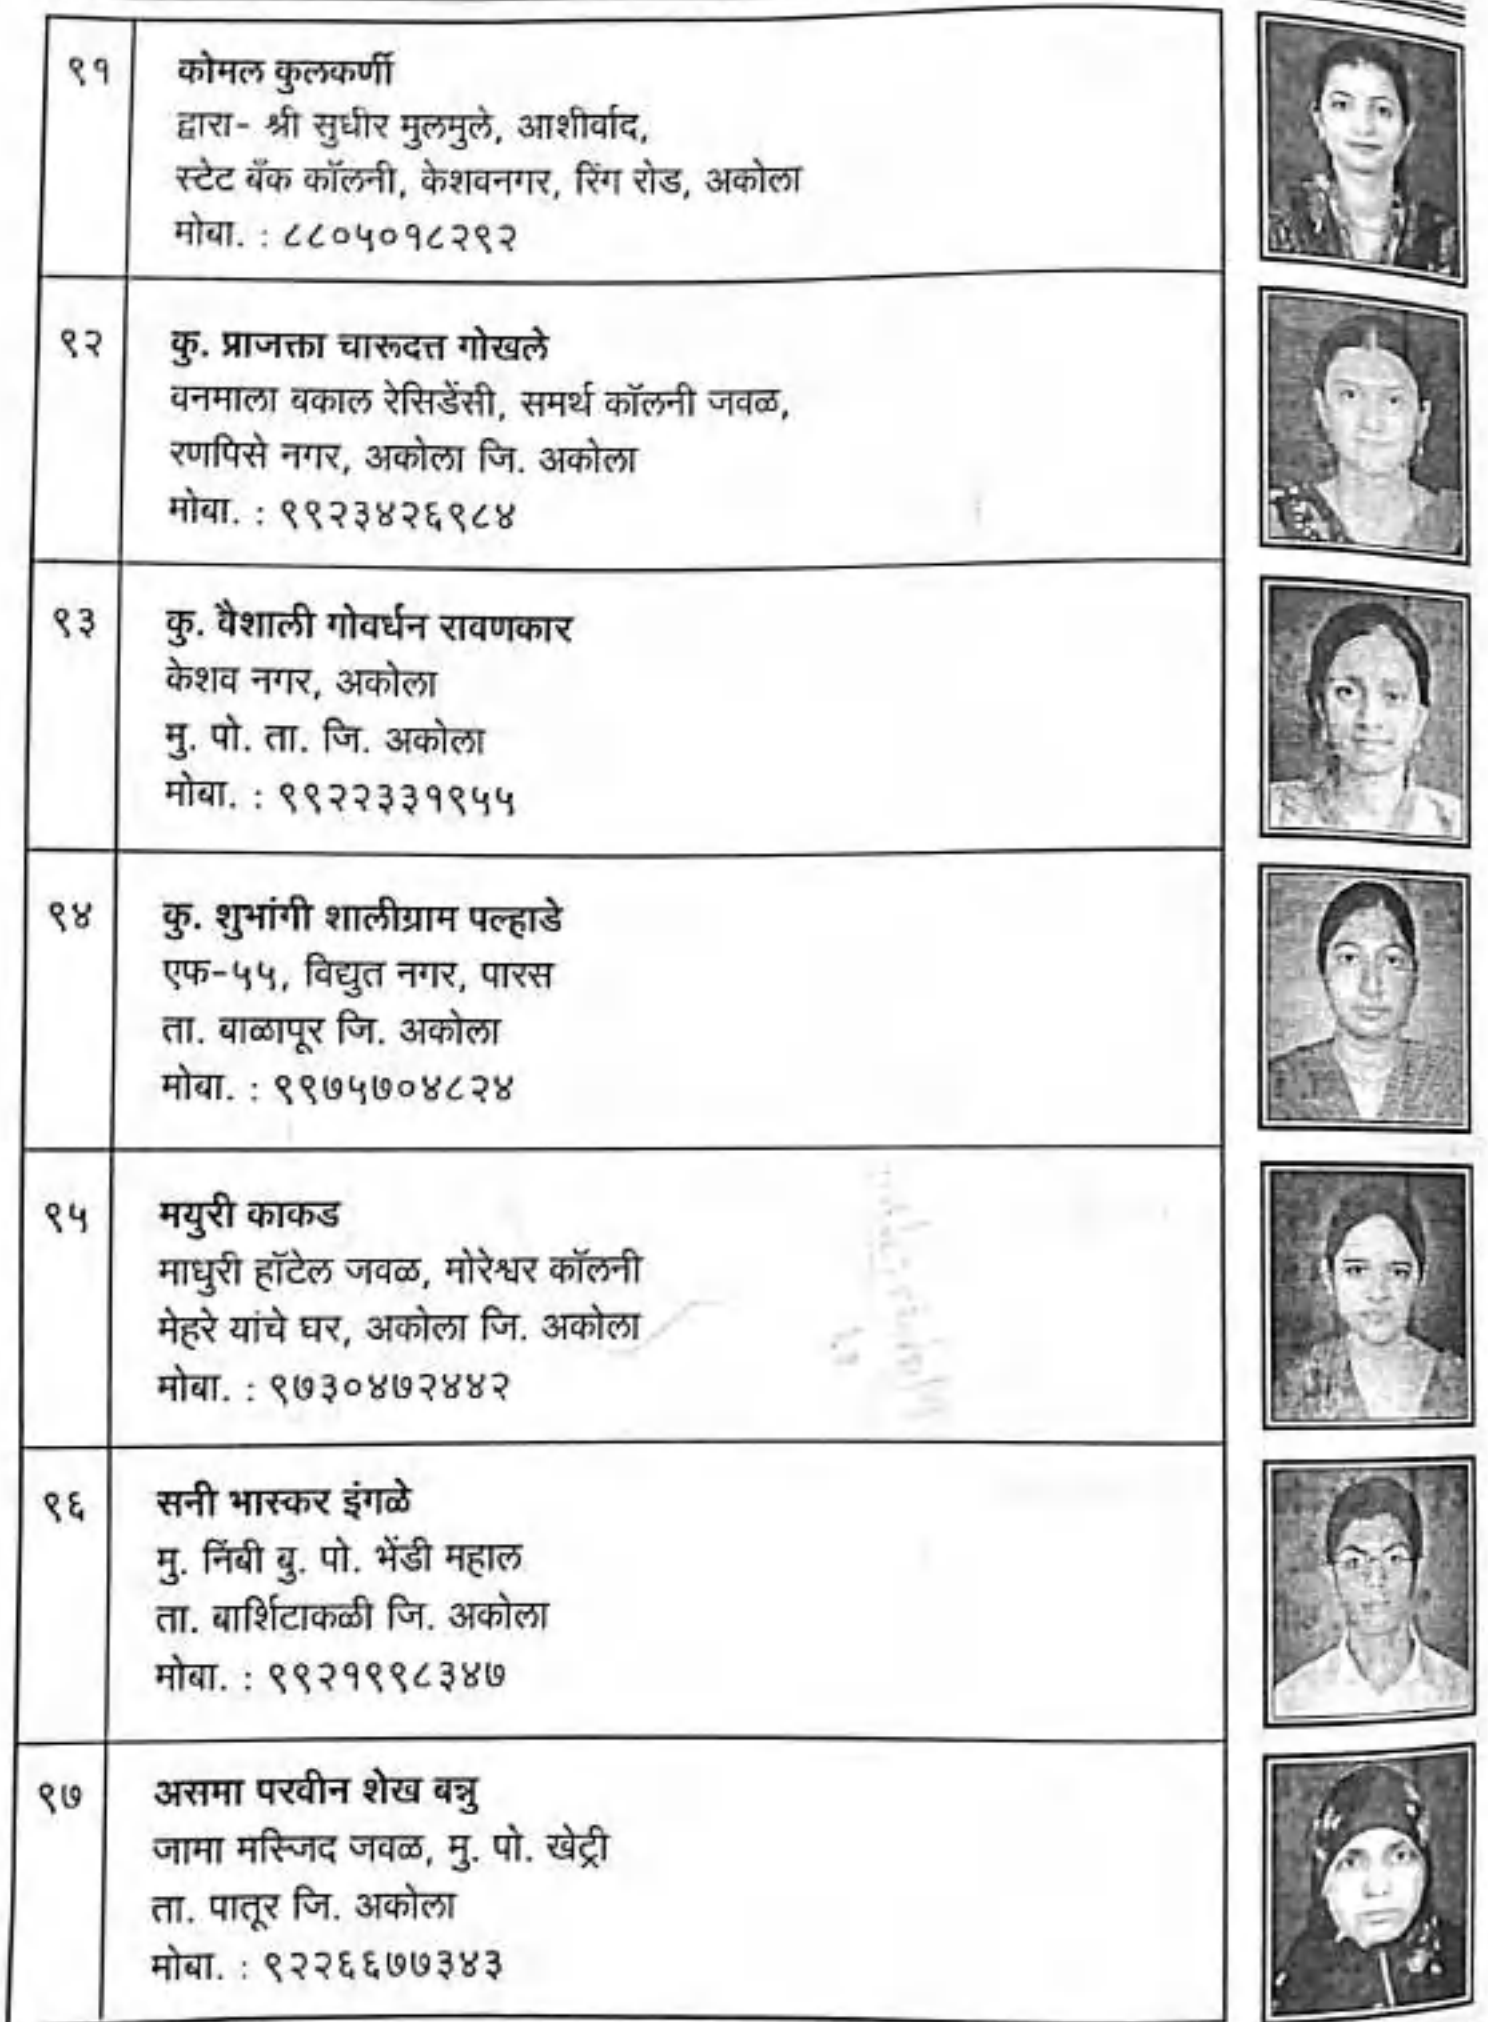 ९१
कोमल कुलकर्णी
द्वारा- श्री सुधीर मुलमुले, आशीर्वाद,
स्टेट बँक कॉलनी, केशवनगर, रिंग रोड, अकोला
मोबा. : ८८०५०१८२९२
९२
कु. प्राजक्ता चारूदत्त गोखले
वनमाला बकाल रेसिडेंसी, समर्थ कॉलनी जवळ,
रणपिसे नगर, अकोला जि. अकोला
मोबा. : ९९२३४२६९८४
९३
कु. वैशाली गोवर्धन रावणकार
केशव नगर, अकोला
मु. पो. ता. जि. अकोला
मोबा. : ९९२२३३१९५५
९४
कु. शुभांगी शालीग्राम पल्हाडे
एफ-५५, विद्युत नगर, पारस
ता. बाळापूर जि. अकोला
मोबा. : ९९७५७०४८२४
९५
मयुरी काकड
माधुरी हॉटेल जवळ, मोरेश्वर कॉलनी
मेहरे यांचे घर, अकोला जि. अकोला
मोबा. : ९७३०४७२४४२
९६
सनी भास्कर इंगळे
मु. निंबी बु. पो. भेंडी महाल
ता. बार्शिटाकळी जि. अकोला
मोबा. : ९९२१९९८३४७
९७
असमा परवीन शेख बन्नु
जामा मस्जिद जवळ, मु. पो. खेट्री
ता. पातूर जि. अकोला
मोबा. : ९२२६६७७३४३